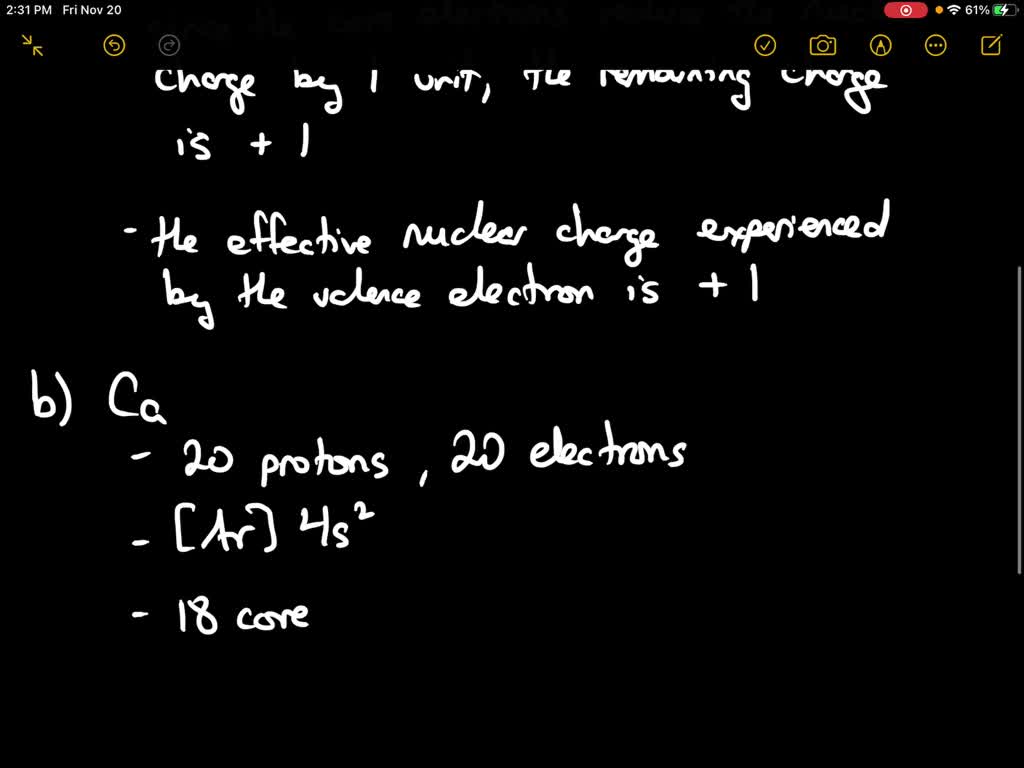 2:31 PM Fri Nov 20 61%
charge by 1 unit, the remaining charge
is + 1
- the effective nuclear charge experienced
by the valence electron is + 1
b) Ca
- 20 protons, 20 electrons
- [Ar] 4s²
- 18 core